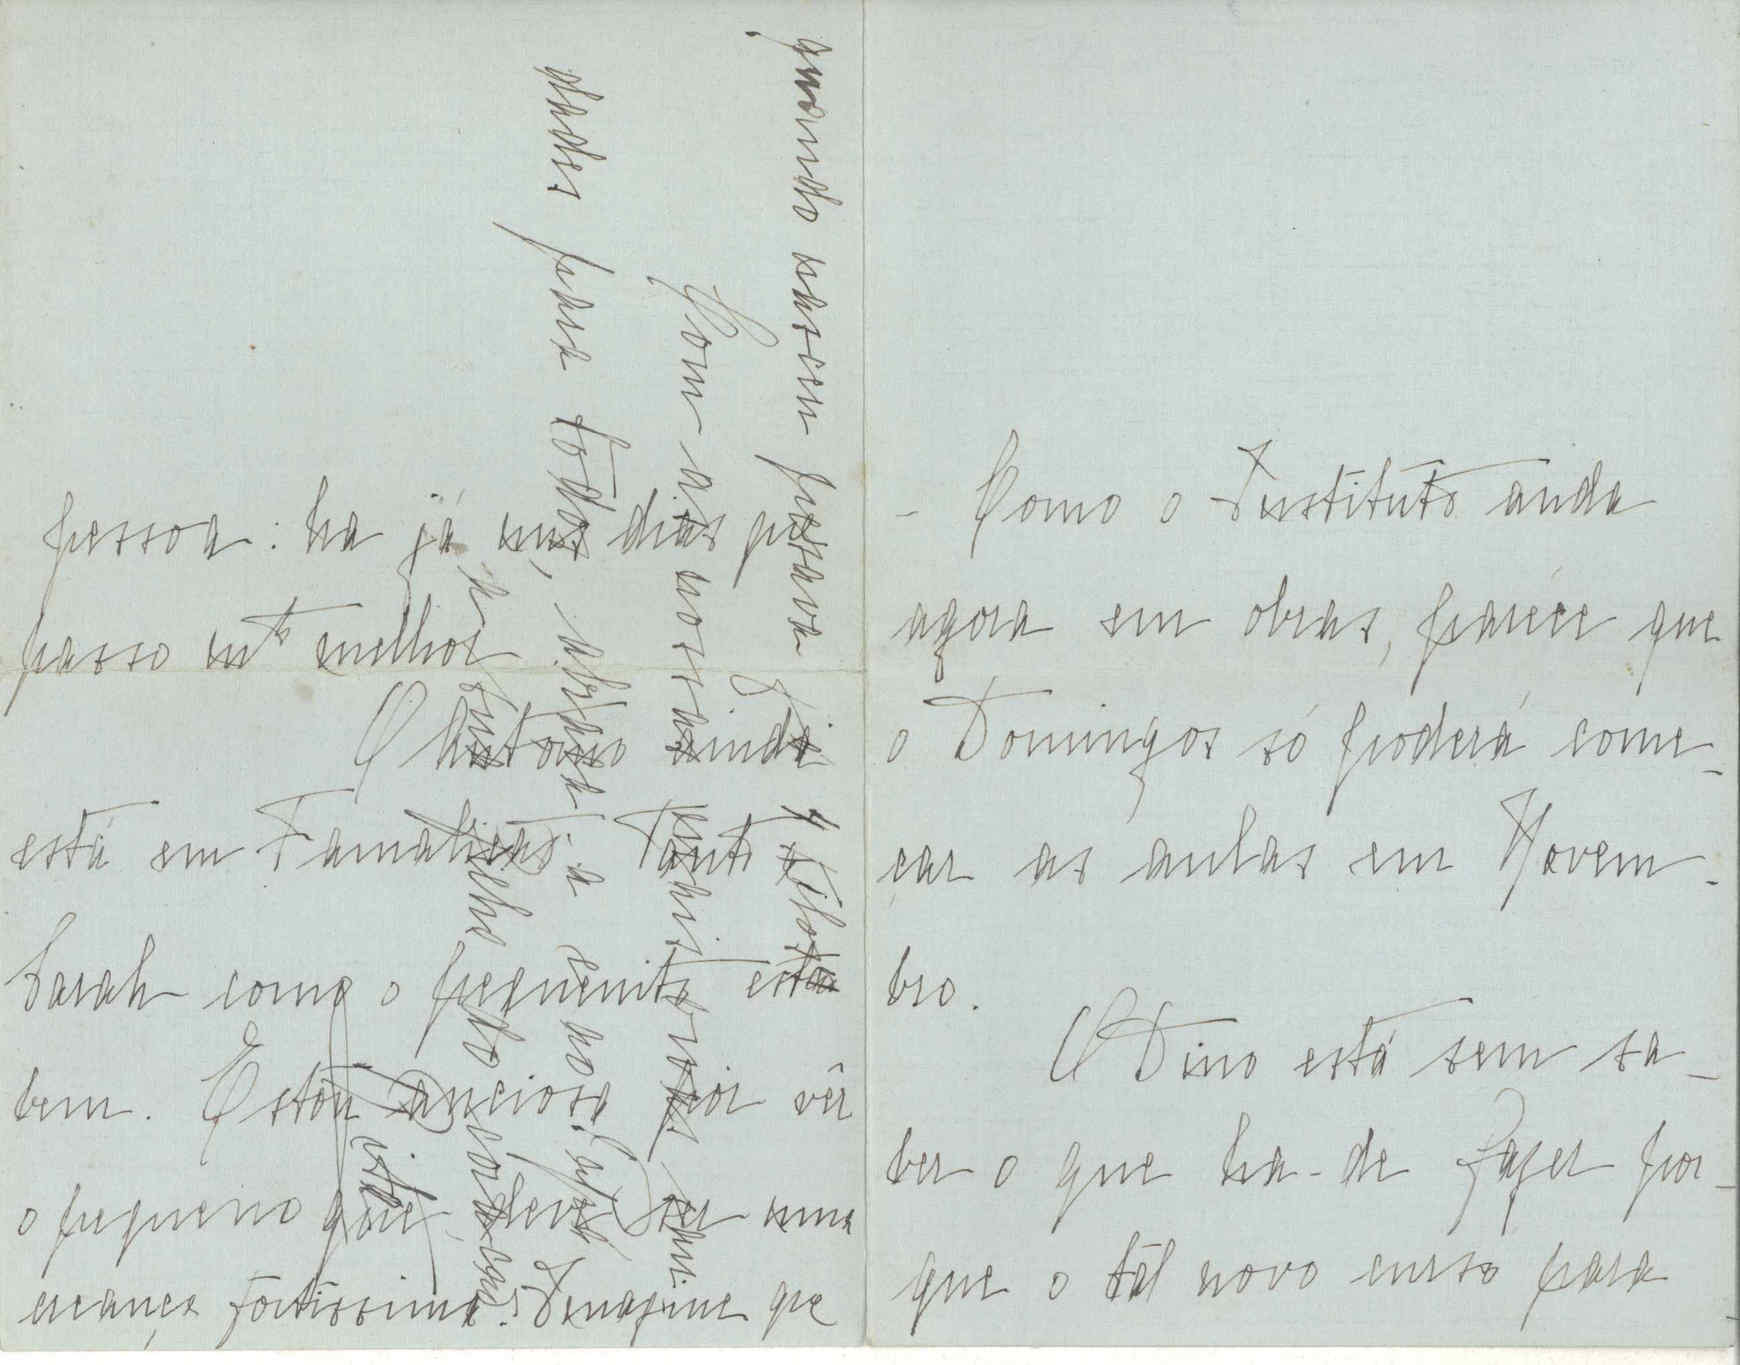 pessoa: ha já uns dias p.
passo mto melhor
O Antonio ainda
está em Famalicão. Tanto
Sarah como o pequenito estão
bem. Estou anciosa por vêr
o pequeno que deve ser uma
creança fortissima. Imagine que
quando nasceu pesava 5 kilos
Com as nossas mais
dades para todos, abraça-a a no
seu velho do coração
- Como o Instituto anda
agora em obras, parece que
o Domingos só poderá come-
çar as aulas em Novem-
bro.
O Dino está sem sa-
ber o que ha-de fazer por-
que o tal novo curso para